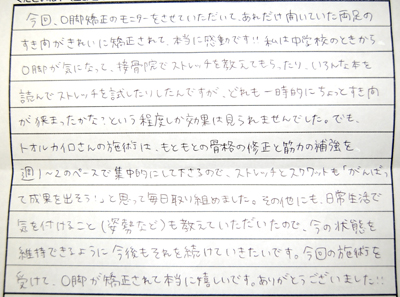 今回、O脚矯正のモニターをさせていただいて、あれだけ開いていた両足の
すき間がきれいに矯正されて、本当に感動です!! 私は中学校のときから
O脚が気になって、接骨院でストレッチを教えてもらったり、いろんな本を
読んでストレッチを試したりしたんですが、どれも一時的にちょっとすき間
が狭まったかな?という程度しか効果は見られませんでした。でも、
トオルカイロさんの施術は、もともとの骨格の修正と筋力の補強を、
週1~2のペースで集中的にして下さるので、ストレッチとスクワットも「がんばっ
て成果を出そう!」と思って毎日取り組めました。その他にも、日常生活で
気を付けること(姿勢など)も教えていただいたので、今の状態を
維持できるように今後もそれを続けていきたいです。今回の施術を
受けて、O脚が矯正されて本当に嬉しいです。ありがとうございました!!